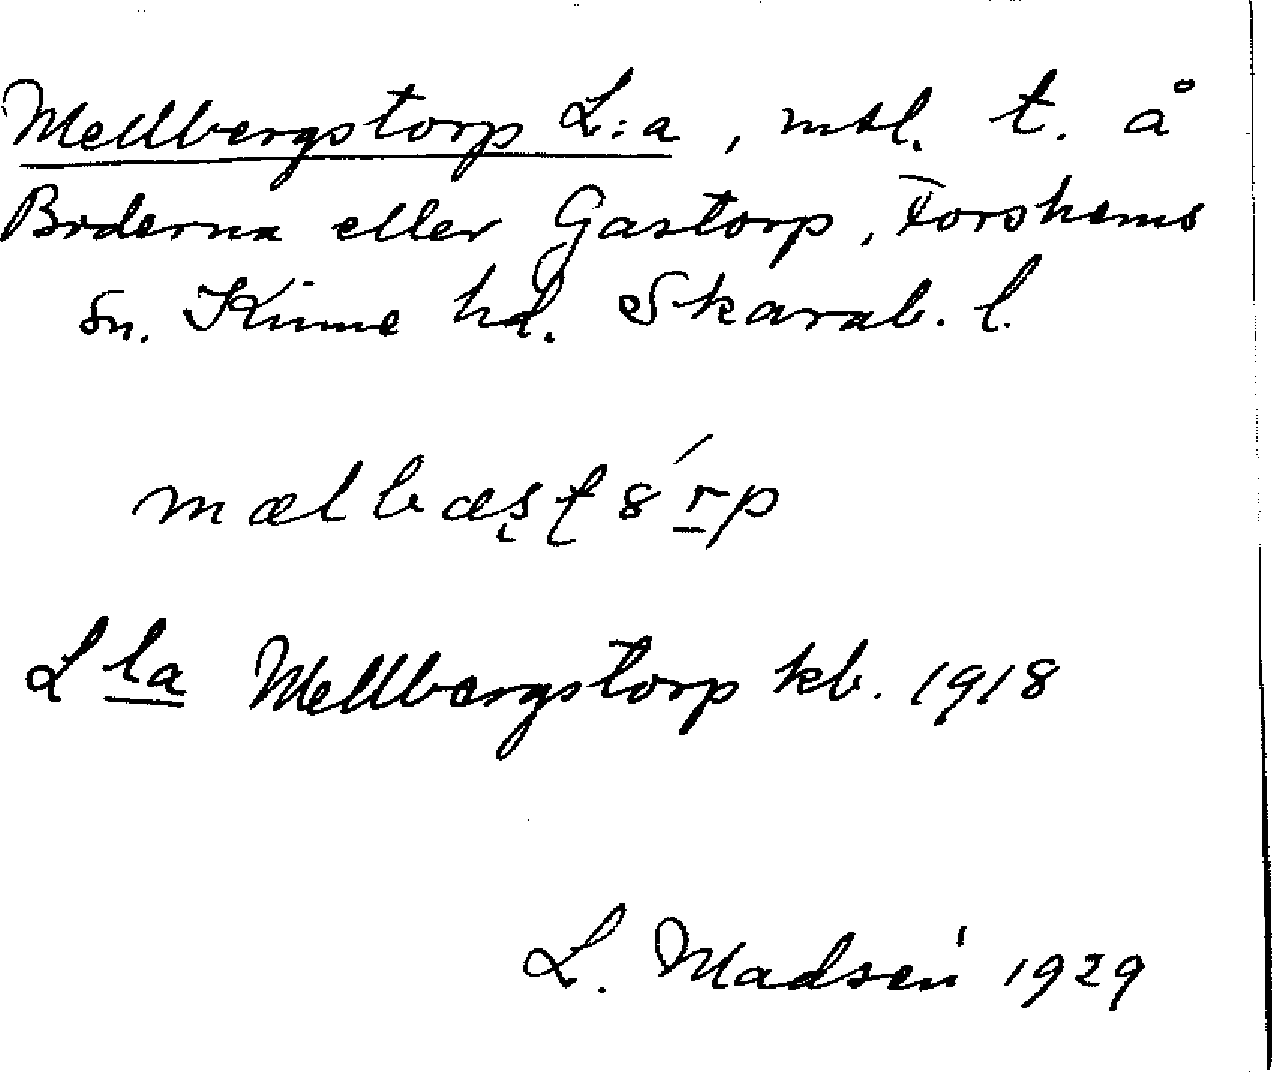 Mellbergstorp L:a, mtl. t. å
Boderna eller Gastorp, Forshems
sn. Kinne hd. Skarab. l.
mælbæʂʈ8´rp
L la Mellbergstorp kb. 1918
L. Madsén 1929